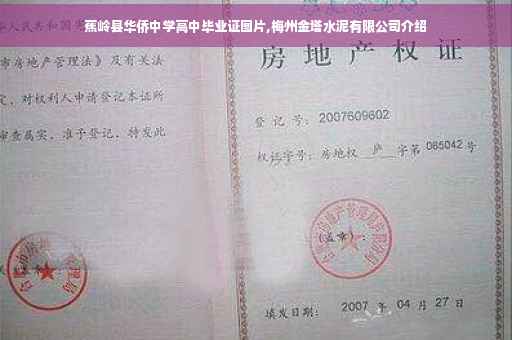 蕉岭县华侨中学高中毕业证图片,梅州金塔水泥有限公司介绍
市房地产管理法》及有关法
定，对权利人申请登记本证所
审查属实，准予登记，特发此
房地产权证
登记号：2007609602
权证字号：房地权 庐 字第 085042 号
（盖章）：
填发日期：2007 年 04 月 27 日